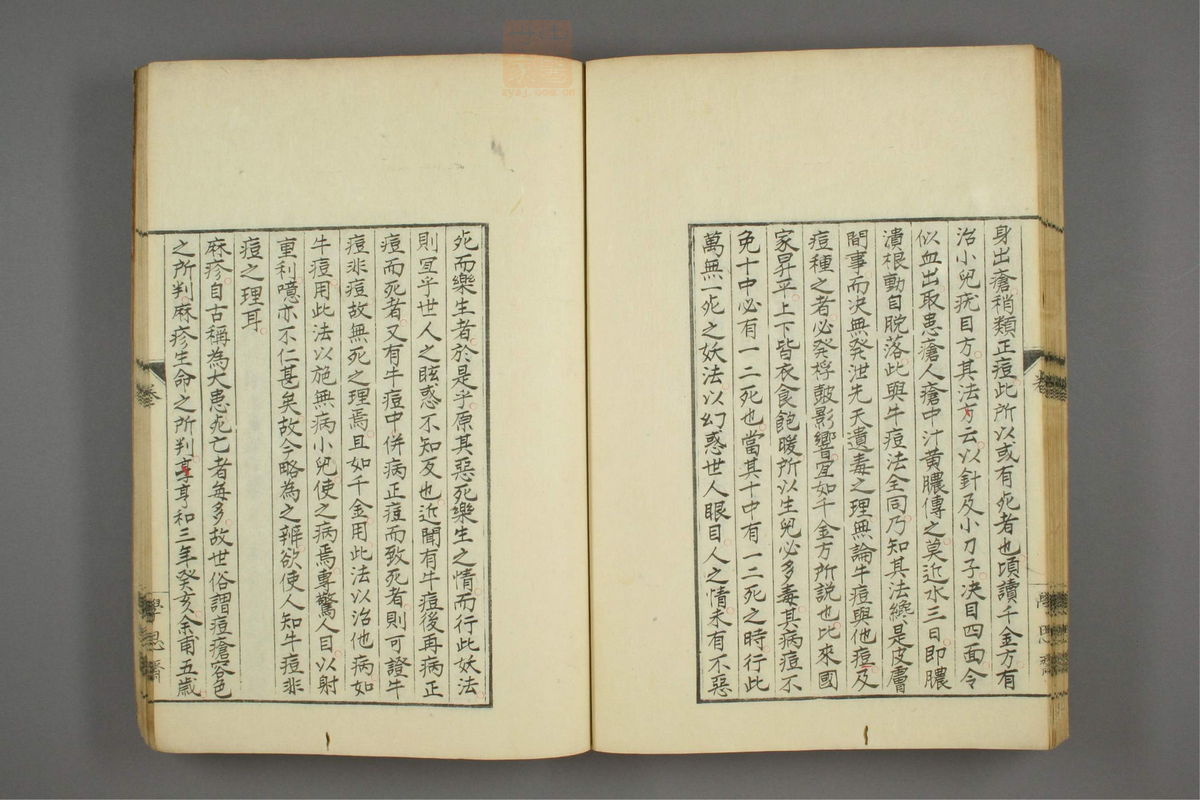 身出瘡稍類正痘此所以或有死者也頃讀千金方有
治小兒疣目方其法方云以針及小刀子决目四面令
似血出取患瘡人瘡中汁黃膿傅之莫近水三日即膿
潰根動自脫落此與牛痘法全同乃知其法纔是皮膚
間事而决無發泄先天遺毒之理無論牛痘與他痘及
痘種之者必發桴鼓影響宜如千金方所說也比來國
家昇平上下皆衣食飽暖所以生兒必多毒其病痘不
免十中必有一二死也當其十中有一二死之時行此
萬無一死之妖法以幻惑世人眼目人之情未有不惡
死而樂生者於是乎原其惡死樂生之情而行此妖法
則宜乎世人之眩惑不知反也近聞有牛痘後再病正
痘而死者又有牛痘中併病正痘而致死者則可證牛
痘非痘故無死之理焉且如千金用此法以治他病如
牛痘用此法以施無病小兒使之病焉專驚人目以射
重利噫亦不仁甚矣故今略為之辨欲使人知牛痘非
痘之理耳
麻疹自古稱為大患死亡者每多故世俗謂痘瘡容色
之所判麻疹生命之所判享亨和三年癸亥余甫五歲
卷
學思齋